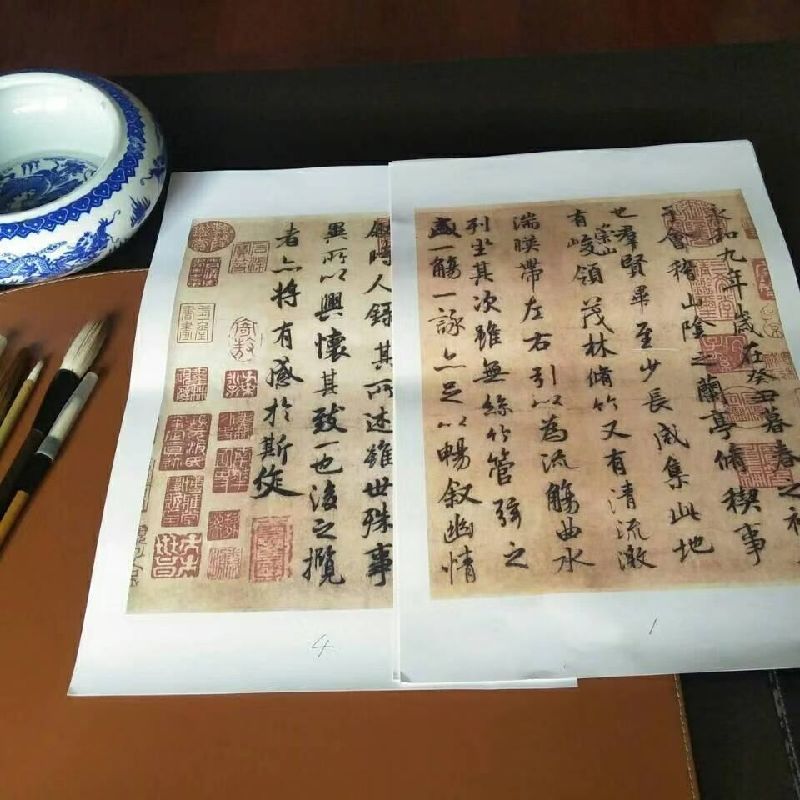 永和九年歲在癸丑暮春之初
于會稽山陰之蘭亭脩稧事
也羣賢畢至少長咸集此地
有崇山峻領茂林脩竹又有清流激
湍暎帶左右引以為流觴曲水
列坐其次雖無絲竹管弦之
盛一觴一詠亦足以暢叙幽情
1
叙時人錄其所述雖世殊事
異所以興懷其致一也後之攬
者亦將有感於斯作
4